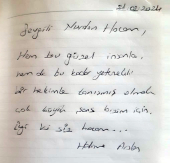 21.02.2024
Sevgili Nurdan Hocam,
Hem bu güzel insanla,
hem de bu kadar yetenekli
bir hekimle tanışmış olmak
çok büyük şans bizim için.
İyi ki siz hocam...